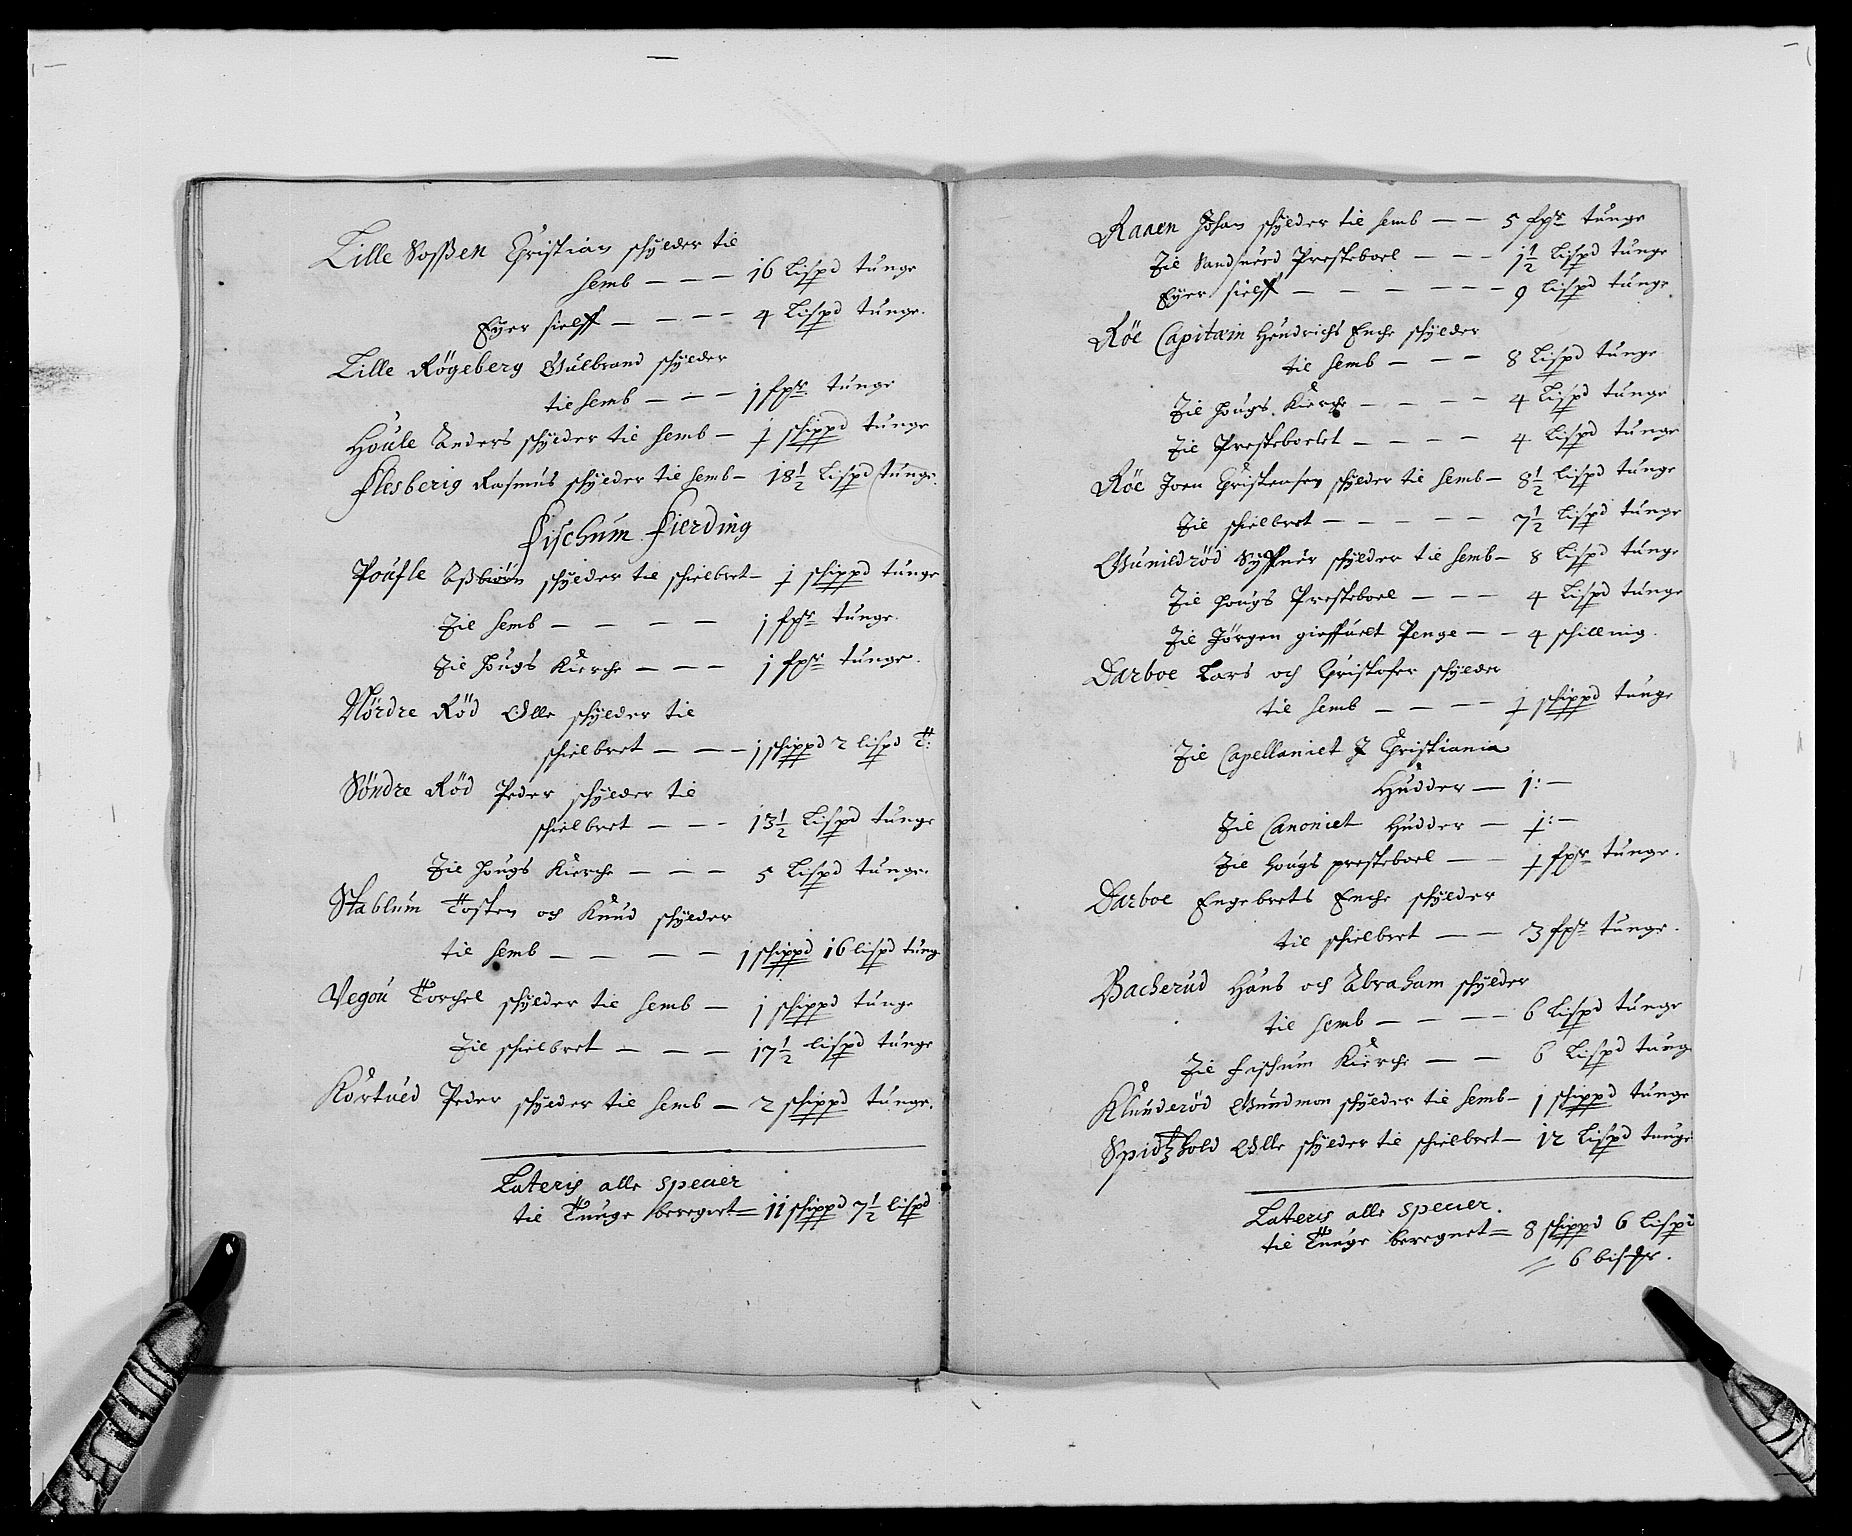 Lille Sossen Christian schylder til
Semb — — — 16 Lispd tunge
Eyer sielff — — — — 4 Lispd tunge.
Lille Rögeberg Gulbrand schylder
til Semb — — — 1 fpr tunge
Houle Anders schylder til Semb — 1 schippd tunge
Flesberig Rasmus schylder til Semb — 18½ Lispd tunge.
Fischum Fierding
Poufle Assbiörn schylder til schielbret — 1 schippd tunge
Til Semb — — — — 1 fpr tunge.
Til Hougs Kierche — — — 1 fpr tunge.
Nördre Röd Olle schylder til
schielbret — — — 1 schippd 2 lispd T:
Söndre Röd Peder schylder til
schielbret — — — 13½ Lispd tunge
Til Hougs Kierche — — — 5 Lispd tunge.
Stablum Tosten och Knud schylder
til Semb — — — — 1 schippd 16 lispd tung
Vegou Torchel schylder til Semb — 1 schippd tunge
Til schielbret — — — 17½ lispd tunge
Kortued Peder schylder til Semb — 2 schippd tunge.
Lateris alle specier
til Tunge beregnet = 11 schippd 7½ lispd
Raaen Johan schylder til Semb — — 5 fpr tunge
Til Sandsuerd Presteboel — — — 1½ Lispd tunge
Eyer sielff — — — — — — 9 lispd tunge.
Röe Capitain Hendrichs Enche schylder
til Semb — — — 8 Lispd tunge
Til Hougs Kierche — — — — 4 Lispd tunge
Til Presteboelet — — — — 4 Lispd tunge
Röe Joen Christensen schylder til Semb — 8½ lispd tunge
Til schielbret — — — — — 7½ Lispd tunge
Gunildröd Syffuer schylder til Semb — 8 Lispd tunge
Til Hougs Presteboel — — — 4 Lispd tunge
Til Jörgen gieffuelt Penge — — 4 schilling.
Darboe Lars och Christofer schylder
til Semb — — — — 1 schippd tunge
Til Capellaniet J Christiania
Hudder — 1: —
Til Canoniet Hudder — 1: —
Til Hougs presteboel — — 1 fpr tunge.
Darboe Engebrets Enche schylder
til schielbret — — 3 fpr tunge.
Bacherud Hans och Abraham schylder
til Semb — — — — 6 Lispd tunge
Til Fischum Kierche — — 6 Lispd tung
Klunderöd Gundmon schylder til Semb — 1 schippd tunge
Spidtzhold Olle schylder til schielbret — 12 Lispd tunge
Lateris alle specier.
til Tunge beregnet = 8 schippd 6 lispd
= 6 bispr.